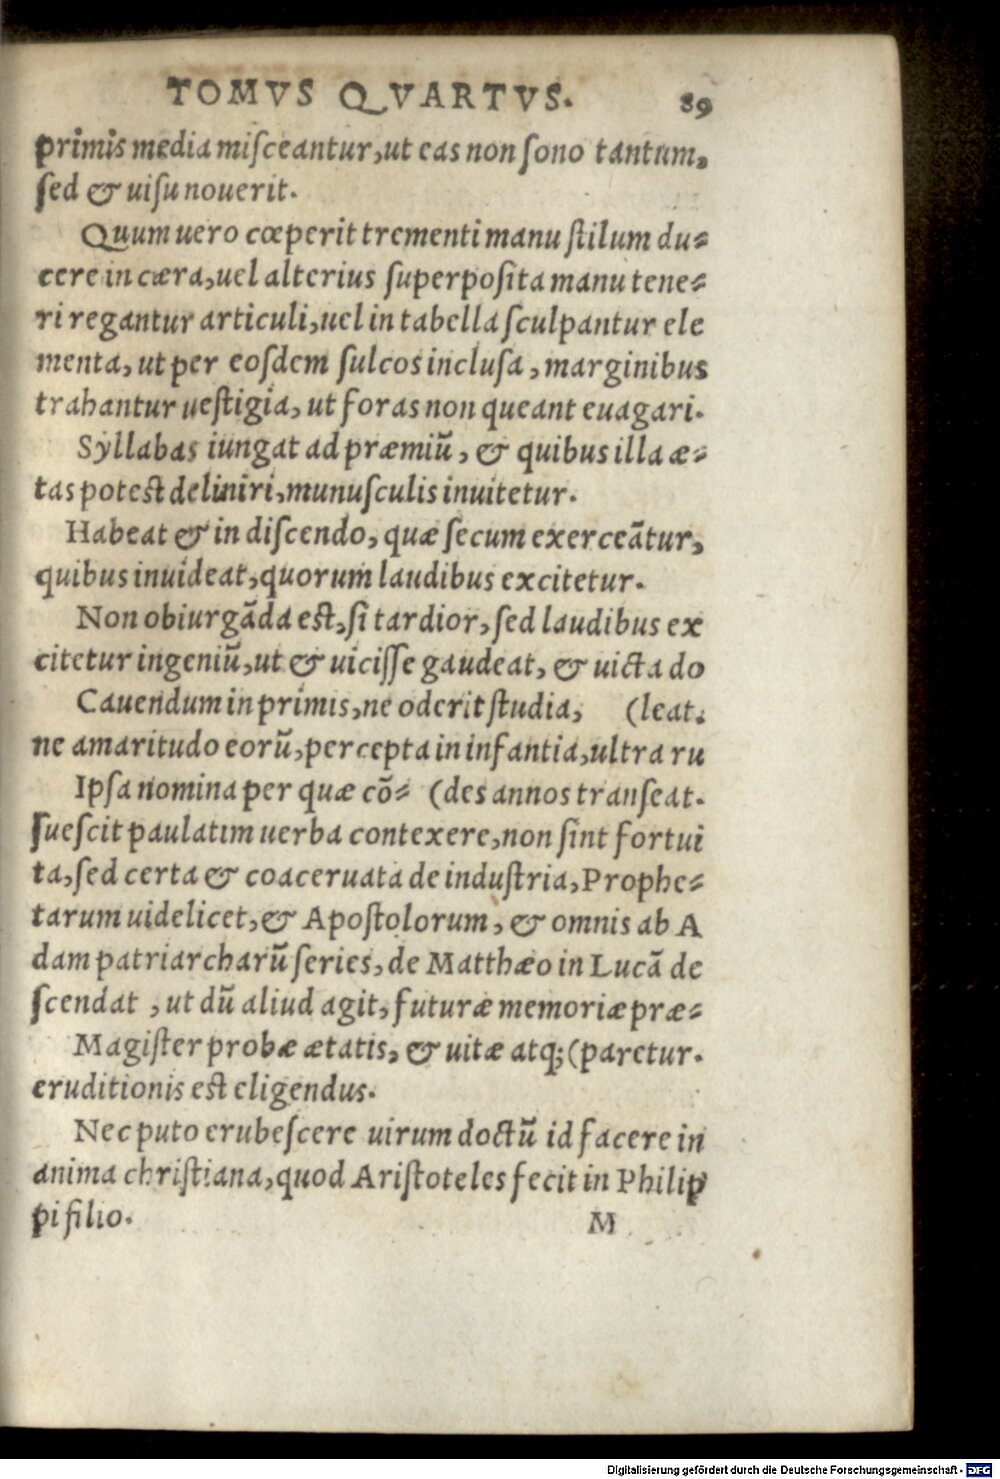 TOMVS QVARTVS. 89
primis media misceantur, ut eas non sono tantum,
sed & uisu nouerit.
Quum uero cœperit trementi manu stilum du⸗
cere in cæra, uel alterius superposita manu tene⸗
ri regantur articuli, uel in tabella sculpantur ele
menta, ut per eosdem sulcos inclusa, marginibus
trahantur uestigia, ut foras non queant euagari.
Syllabas iungat ad præmiũ, & quibus illa æ⸗
tas potest deliniri, munusculis inuitetur.
Habeat & in discendo, quæ secum exerceãtur,
quibus inuideat, quorum laudibus excitetur.
Non obiurgãda est, si tardior, sed laudibus ex
citetur ingeniũ, ut & uicisse gaudeat, & uicta do
Cauendum in primis, ne oderit studia, (leat.
ne amaritudo eorũ, percepta in infantia, ultra ru
Ipsa nomina per quæ cõ⸗ (des annos transeat.
suescit paulatim uerba contexere, non sint fortui
ta, sed certa & coaceruata de industria, Prophe⸗
tarum uidelicet, & Apostolorum, & omnis ab A
dam patriarcharũ series, de Matthæo in Lucã de
scendat , ut dũ aliud agit, futuræ memoriæ præ⸗
Magister probæ ætatis, & uitæ atq; (paretur.
eruditionis est eligendus.
Nec puto erubescere uirum doctũ id facere in
anima christiana, quod Aristoteles fecit in Philip
pi filio. M
Digitalisierung gefördert durch die Deutsche Forschungsgemeinschaft - DFG